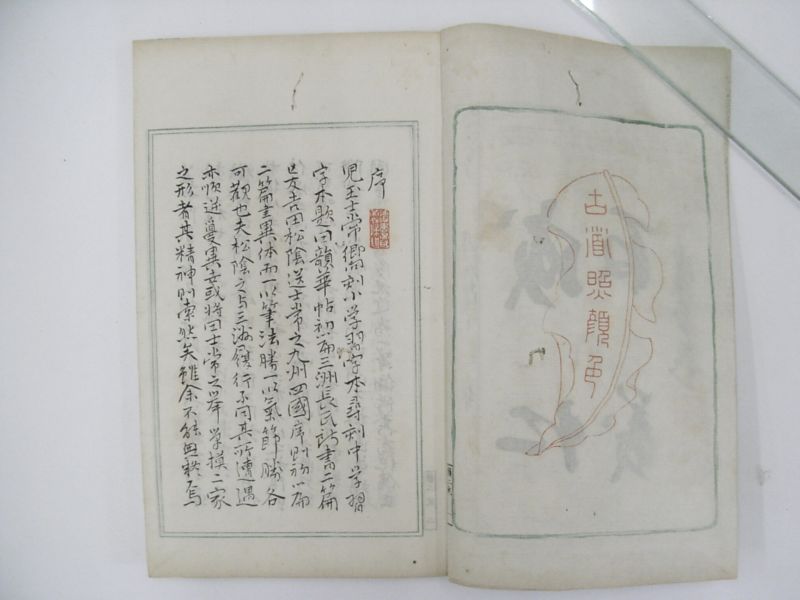 古道照顔色
序
児玉士常郷向刻小学習字本尋刻中学習
字本題曰韻華帖初篇三洲長氏所書二篇
是友吉田松陰送士常之九州四國序則初篇
二篇書異体而一以筆法勝一以氣節勝各
可觀也夫松陰之与三洲履行不同其所遭遇
亦順逆憂異或將曰士常之挙学摸二家
之形者其精神則索然矣雖余不能無疑焉